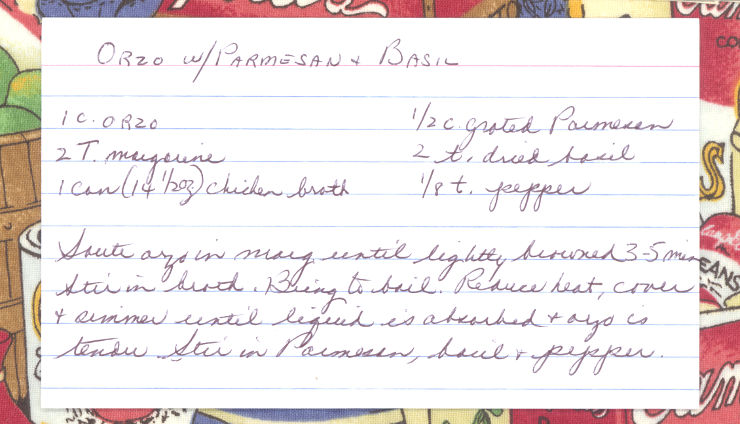 ORZO w/PARMESAN + BASIL
1 C. ORZO
1/2 c. grated Parmesan
2 T. margarine
2 t. dried basil
1 can (14 1/2 oz) chicken broth
1/8 t. pepper
Saute orzo in marg until lightly browned 3-5 min
Stir in broth. Bring to boil. Reduce heat, cover
+ simmer until liquid is absorbed + orzo is
tender Stir in Parmesan, basil + pepper.